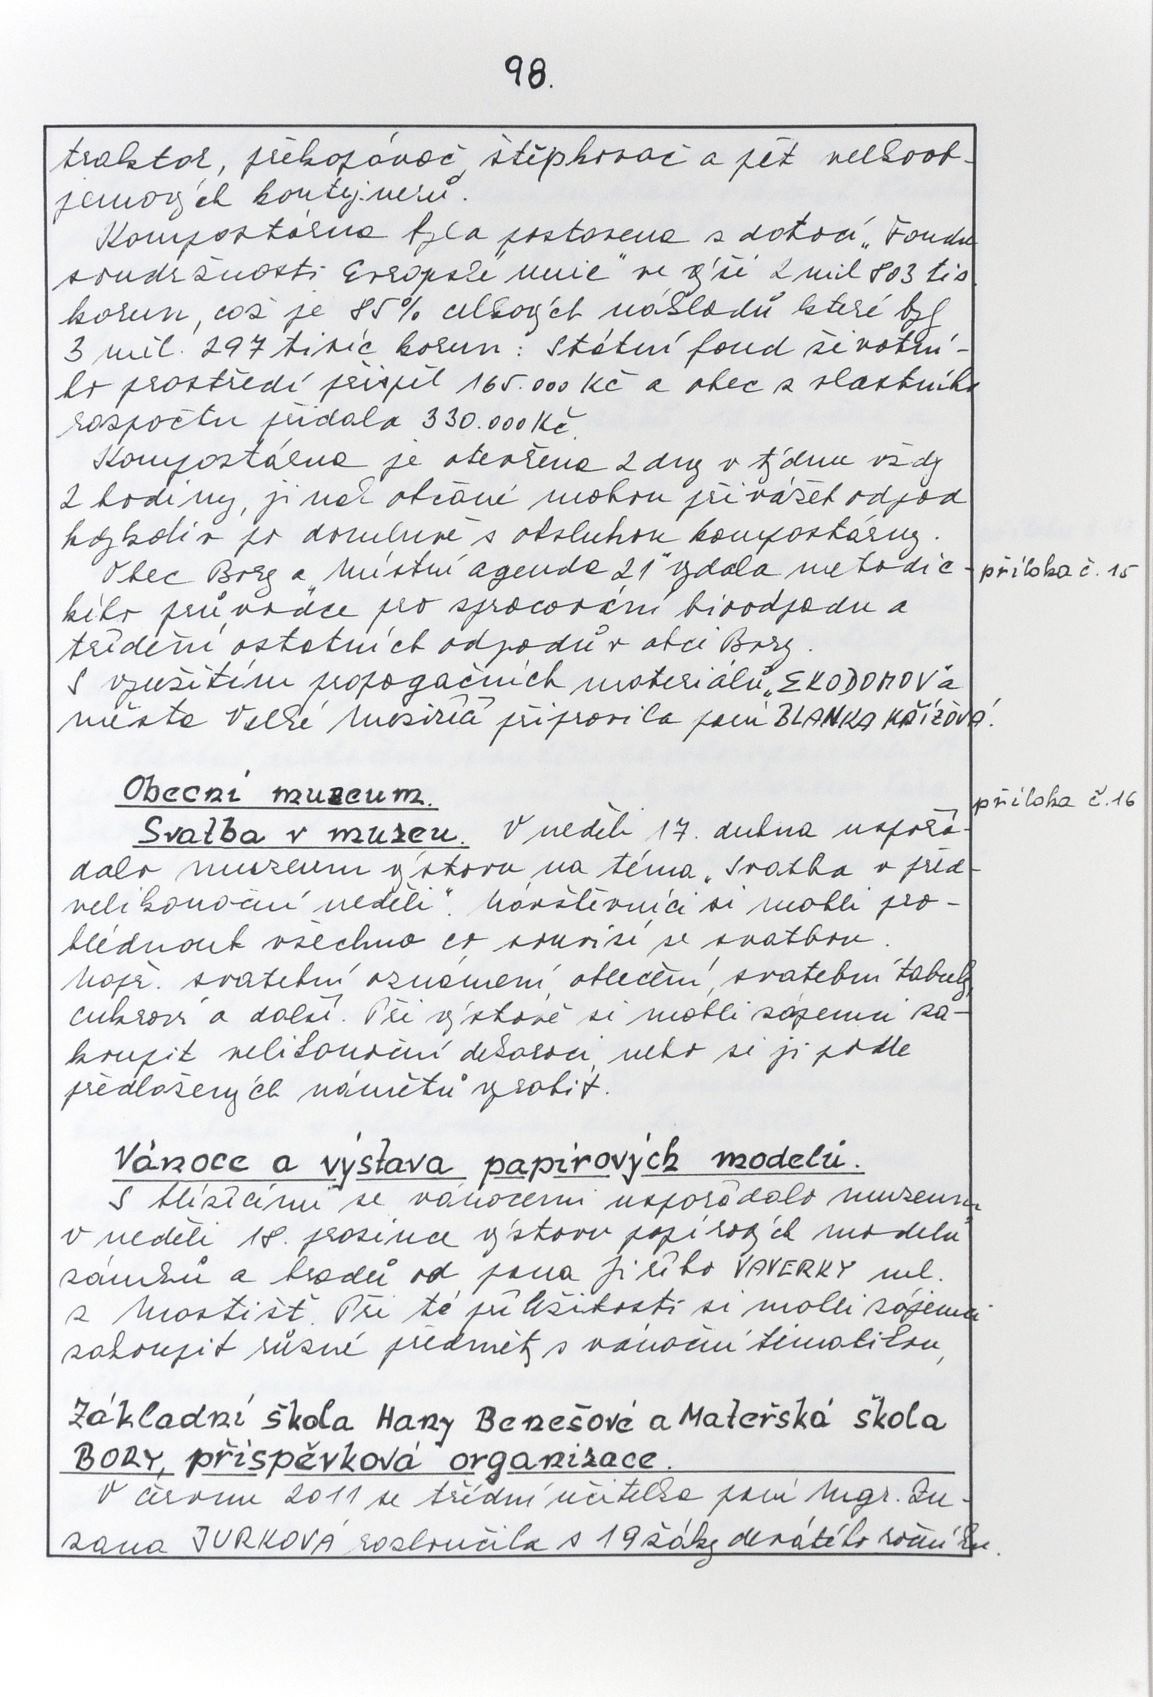 98.
traktor, překopávač, štěpkovač a pět velkoob-
jemových kontejnerů.
Kompostárna byla postavena z dotací „Fondu
soudržnosti Evropské unie" ve výši 2 mil 803 tis.
korun, což je 85% celkových nákladů které byly
3 mil. 297 tisíc korun: Státní fond životní-
ho prostředí přispěl 165.000 Kč a obec z vlastního
rozpočtu přidala 330.000 Kč.
Kompostárna je otevřena 2 dny v týdnu vždy
2 hodiny, jinak občané mohou přivážet odpad
kdykoliv po domluvě s obsluhou kompostárny.
Obec Bory a „Místní agenda 21" vydala metodic-
příloha č. 15
kého průvodce pro zpracování bioodpadu a
třídění ostatních odpadů v obci Bory.
S využitím propagačních materiálů „EKODOMOV a
města Velké Meziříčí připravila paní BLANKA KŘÍŽOVÁ.
Obecní muzeum.
příloha č. 16
Svatba v muzeu. V neděli 17. dubna uspořá-
dalo muzeum výstavu na téma „Svatba v před-
velikonoční neděli". Návštěvníci si mohli pro-
hlédnout všechno co souvisí se svatbou.
Např. svatební oznámení, oblečení, svatební tabuly,
cukroví a další. Při výstavě si mohli zájemci za-
koupit velikonoční dekoraci, nebo si ji podle
předložených námětů vyrobit.
Vánoce a výstava papírových modelů.
S blížícími se vánocemi uspořádalo muzeum
v neděli 18. prosince výstavu papírových modelů
zámků a hradů od pana Jiřího VAVERKY ml.
z Mostišť. Při té příležitosti si mohli zájemci
zakoupit různé předměty s vánoční tématikou,
Základní škola Hany Benešové a Mateřská škola
BORY, příspěvková organizace.
V červnu 2011 se třídní učitelka paní Mgr. Zu-
zana JURKOVÁ rozloučila s 19 žáky devátého ročníku.